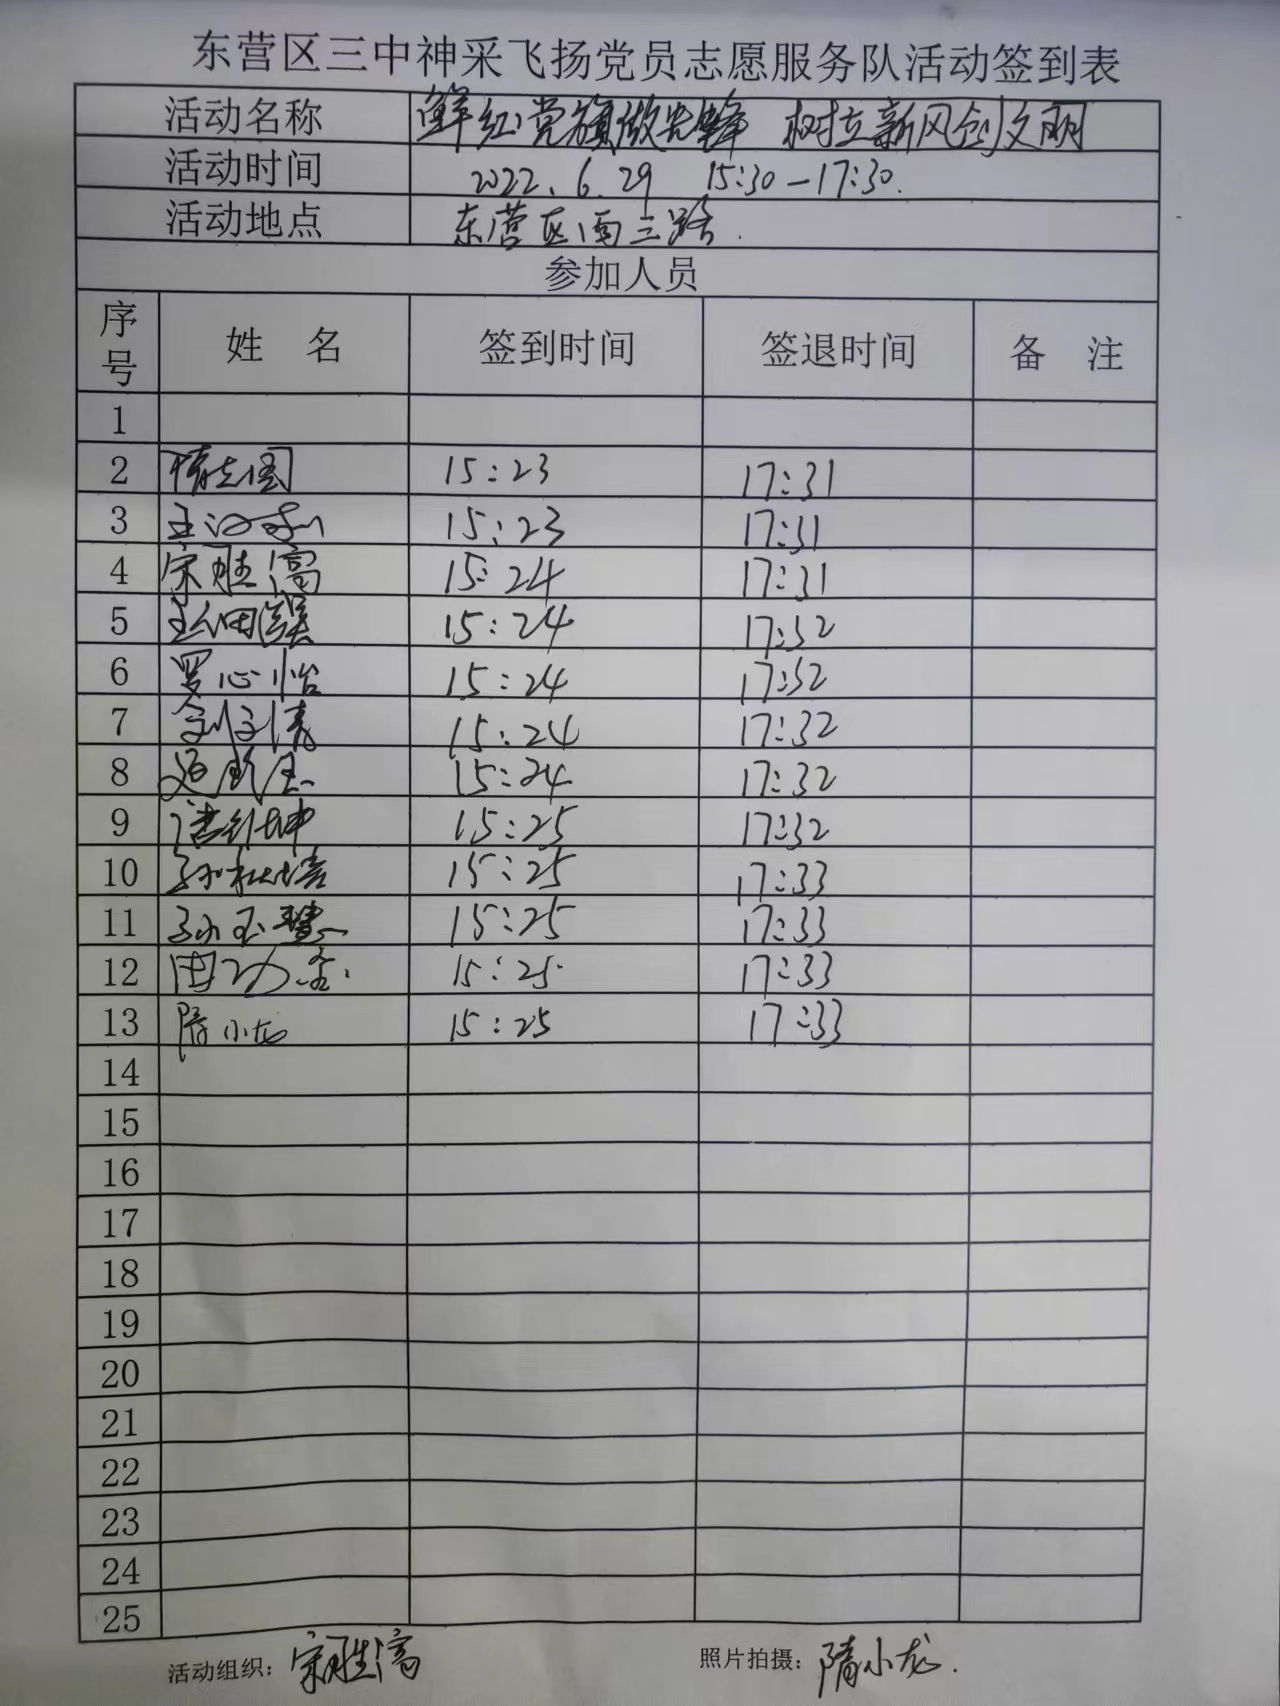 东营区三中神采飞扬党员志愿服务队活动签到表
活动名称 鲜红党旗做先锋 树立新风创文明
活动时间 2022.6.29 15:30—17:30.
活动地点 东营区西三路.
参加人员
序号 姓 名 签到时间 签退时间 备 注
1
2 15:23 17:31
3 15:23 17:31
4 宋胜高 15:24 17:31
5 15:24 17:32
6 罗心怡 15:24 17:32
7 15:24 17:32
8 15:24 17:32
9 15:25 17:32
10 15:25 17:33
11 孙玉慧 15:25 17:33
12 15:25 17:33
13 隋小龙 15:25 17:33
14
15
16
17
18
19
20
21
22
23
24
25
活动组织：宋胜高 照片拍摄：隋小龙.